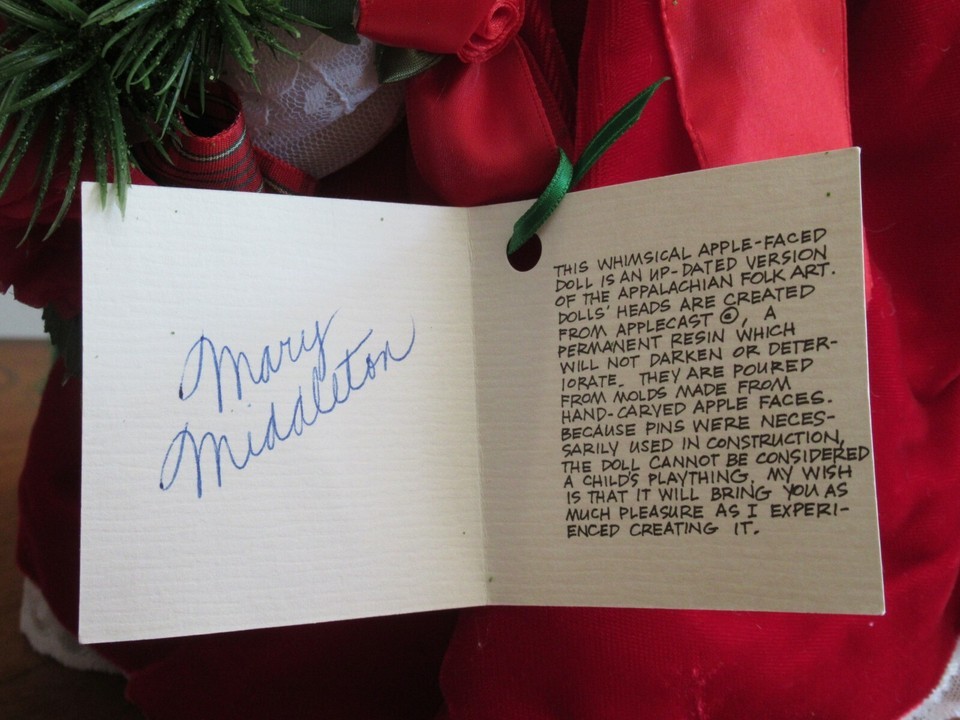 Mary
Middleton
THIS WHIMSICAL APPLE-FACED
DOLL IS AN UP-DATED VERSION
OF THE APPALACHIAN FOLK ART.
DOLLS' HEADS ARE CREATED
FROM APPLECAST ©, A
PERMANENT RESIN WHICH
WILL NOT DARKEN OR DETER-
IORATE. THEY ARE POURED
FROM MOLDS MADE FROM
HAND-CARVED APPLE FACES.
BECAUSE PINS WERE NECES-
SARILY USED IN CONSTRUCTION,
THE DOLL CANNOT BE CONSIDERED
A CHILD'S PLAYTHING. MY WISH
IS THAT IT WILL BRING YOU AS
MUCH PLEASURE AS I EXPERI-
ENCED CREATING IT.